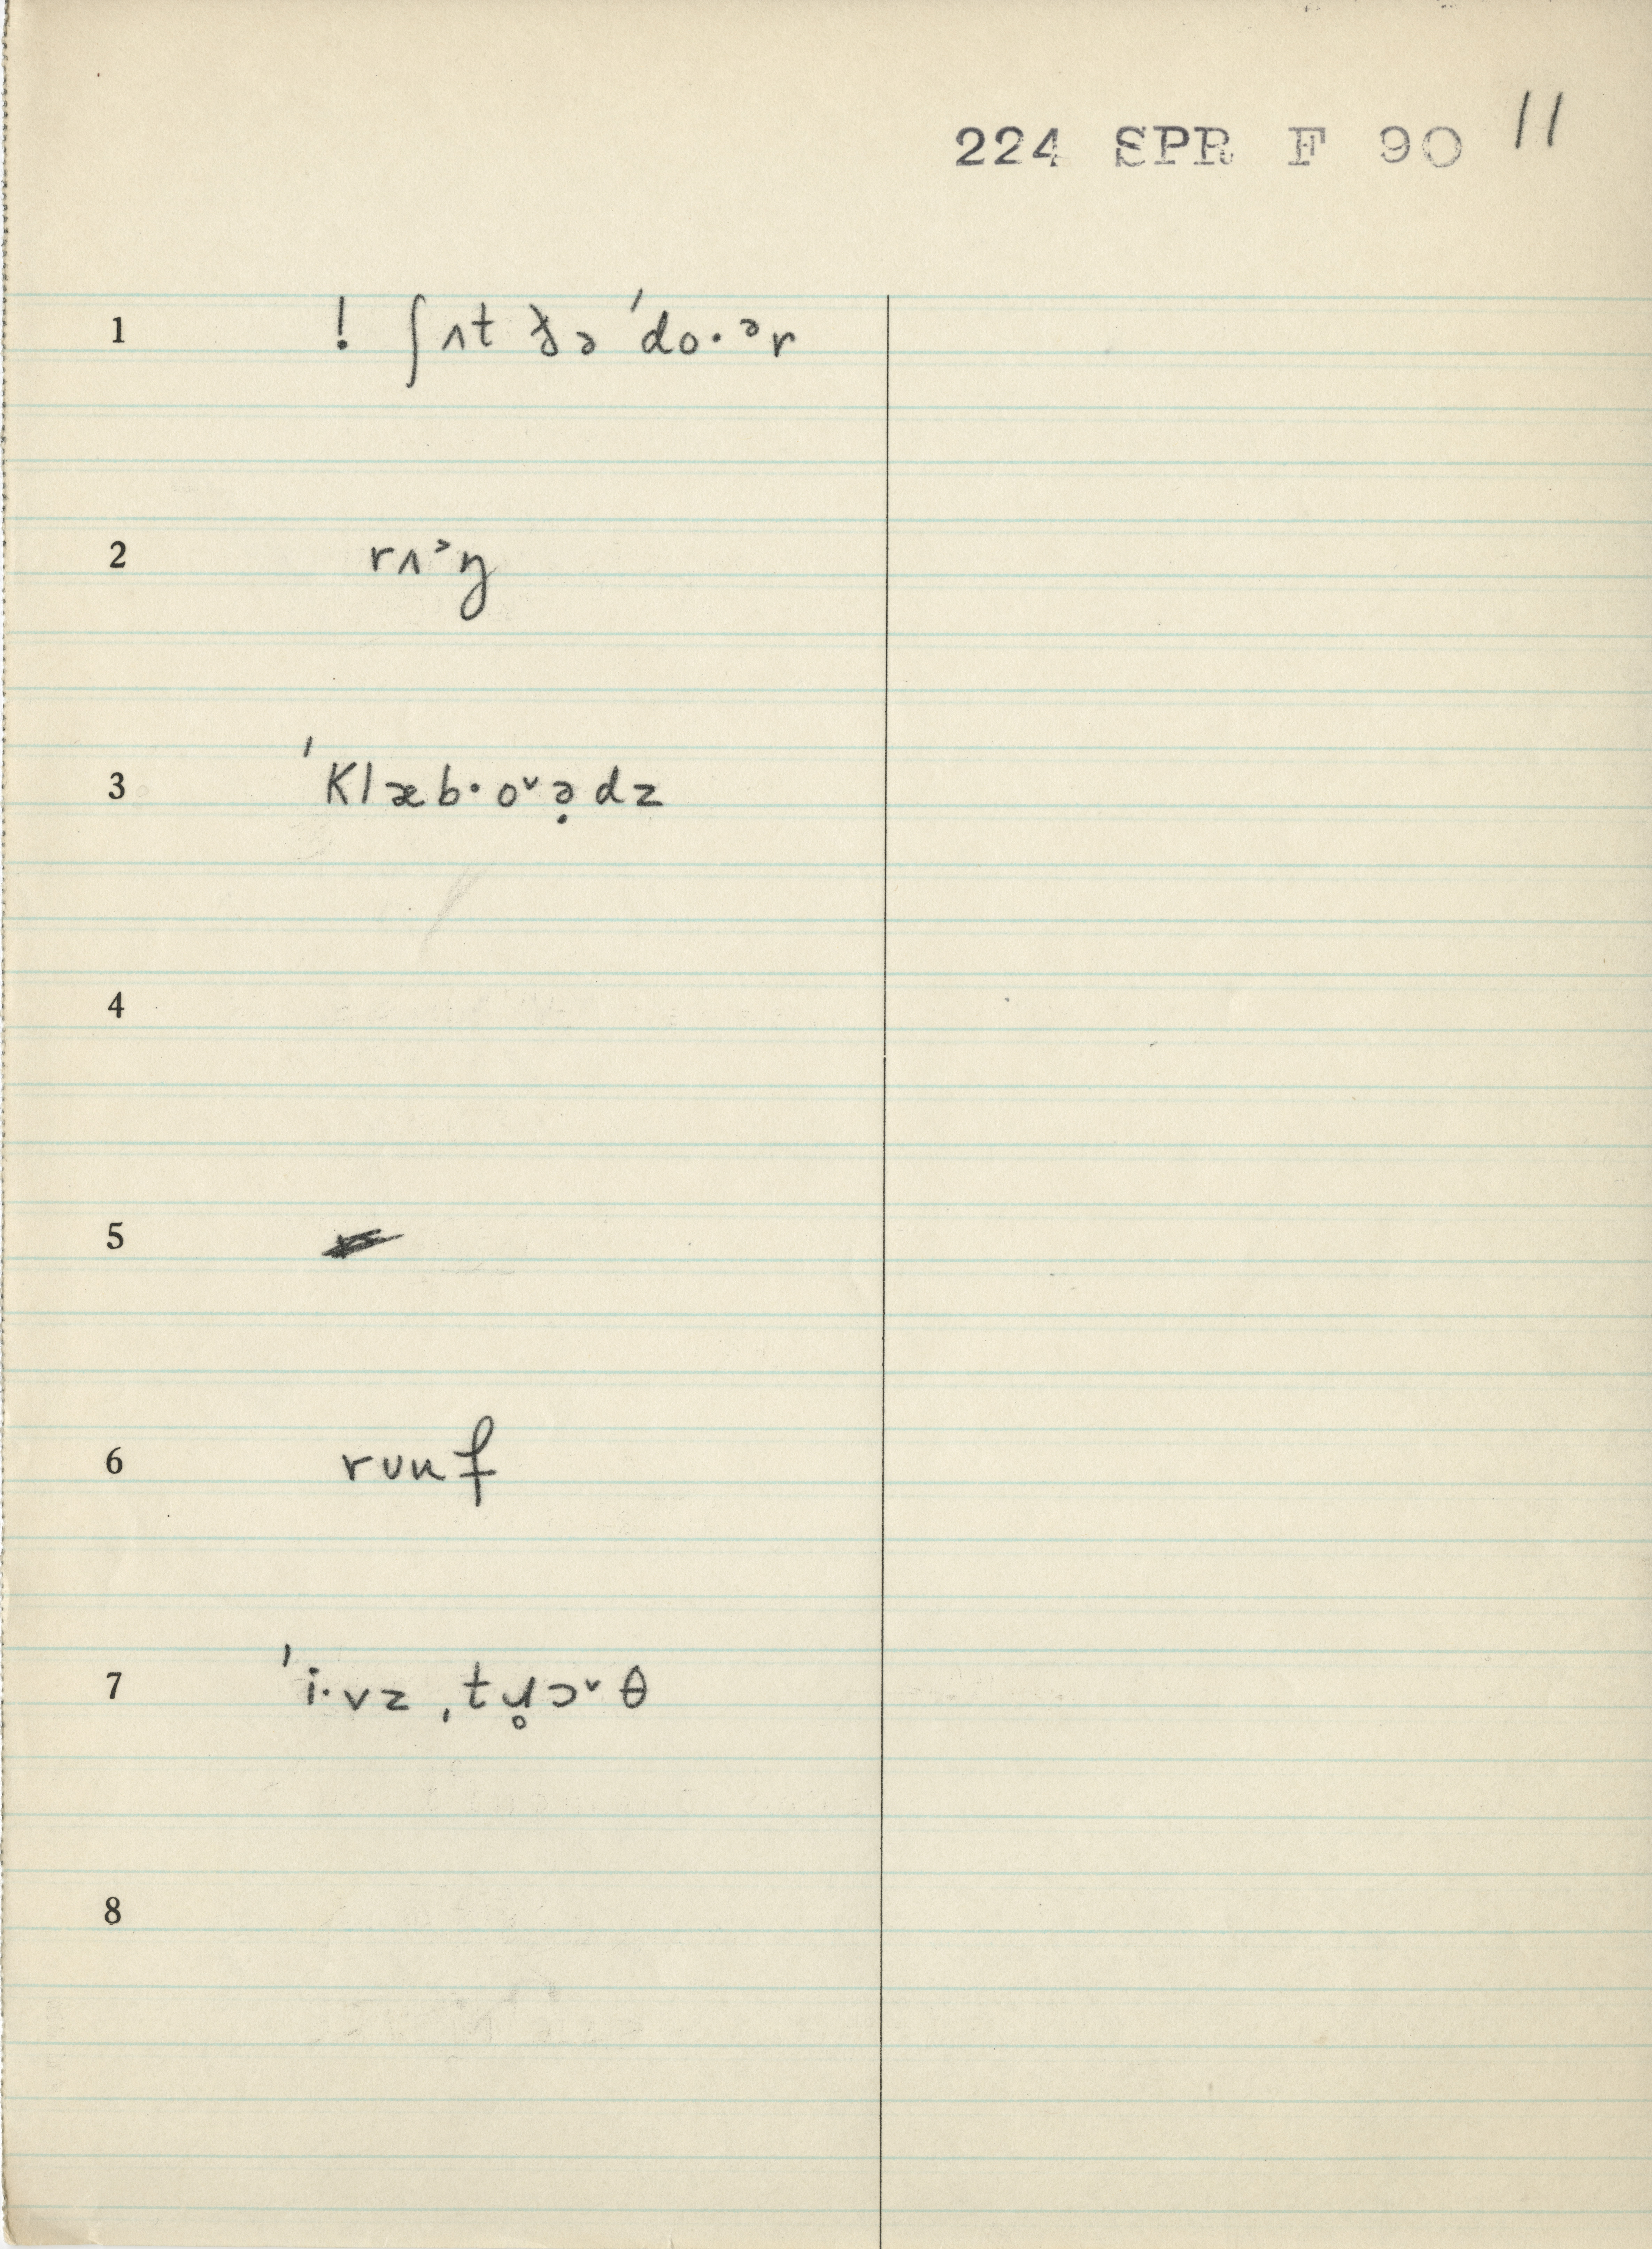 224 SPR F 90 11
1 ! ʃʌt ðə ˈdo·ᵊr
2 rʌ˃ŋ
3 ˈklæb·o˅ə̣dz
4
5
6 rʊuf
7 ˈi·vz ˌtɥ̥ɔ˅θ
8